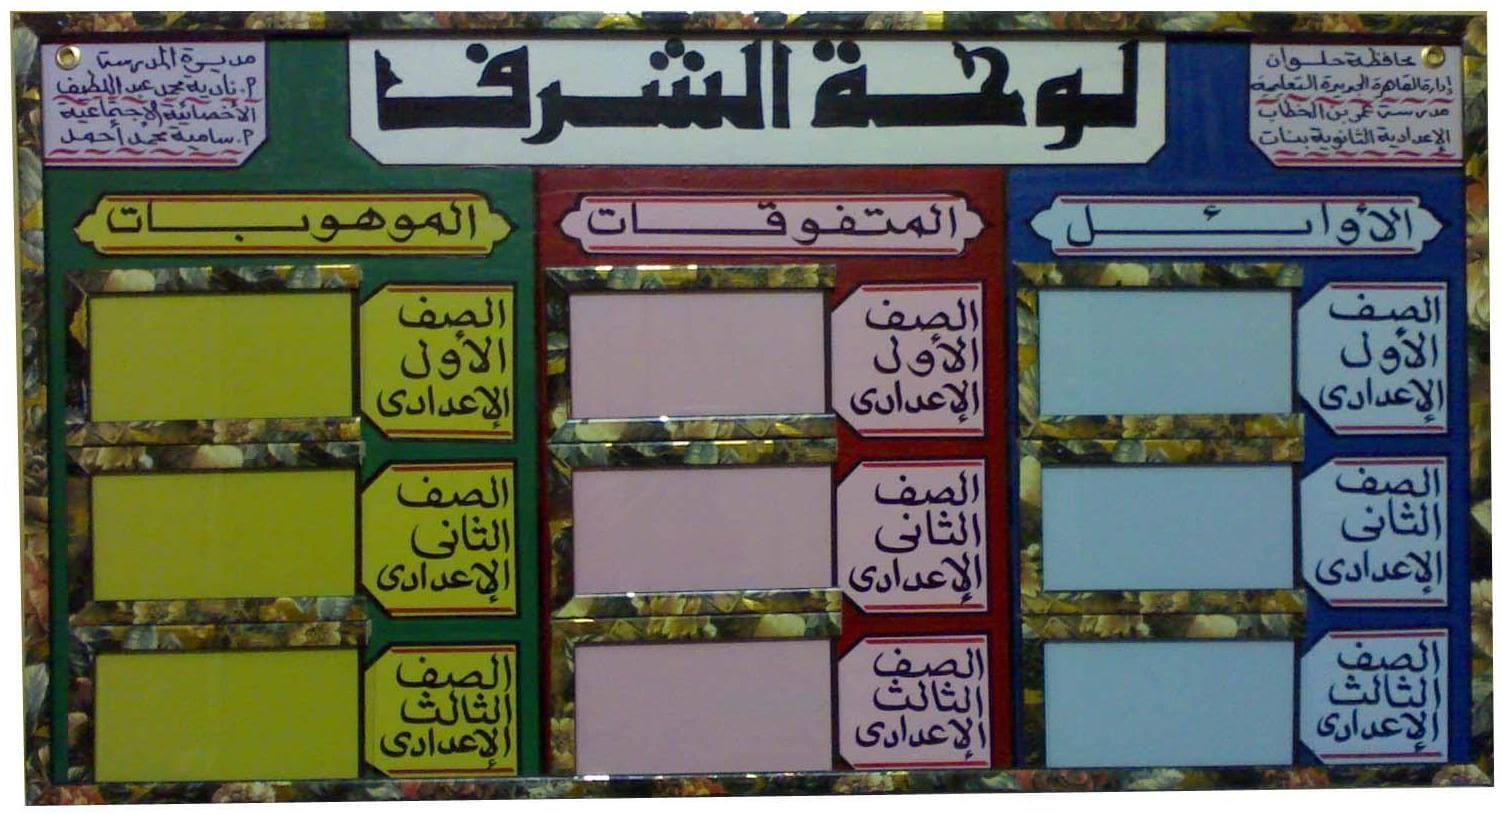 محافظة حلوان
إدارة القاهرة الجديدة التعليمية
مدرسة عمر بن الخطاب
الإعدادية الثانوية بنات
لوحة الشرف
مديرة المدرسة
م. نادية محمد عبد اللطيف
الأخصائية الإجتماعية
م. سامية محمد أحمد
الأوائل
المتفوقات
الموهوبات
الصف
الأول
الإعدادى
الصف
الأول
الإعدادى
الصف
الأول
الإعدادى
الصف
الثانى
الإعدادى
الصف
الثانى
الإعدادى
الصف
الثانى
الإعدادى
الصف
الثالث
الإعدادى
الصف
الثالث
الإعدادى
الصف
الثالث
الإعدادى